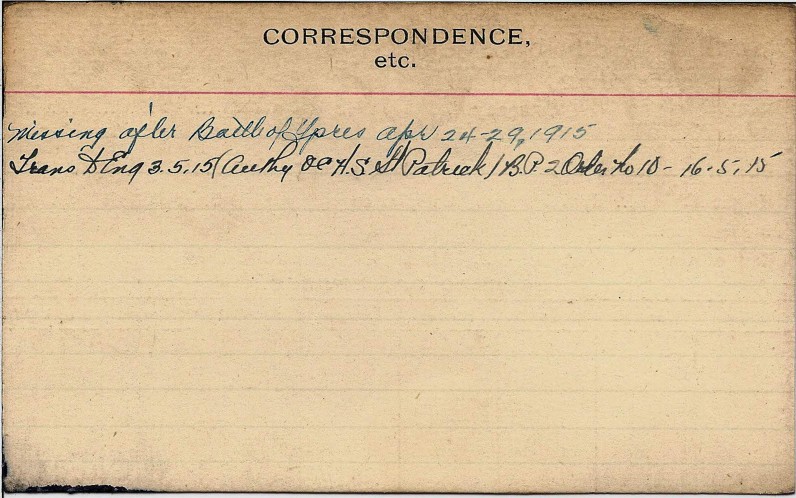 CORRESPONDENCE,
etc.
Missing after Battle of Ypres Apr 24-29, 1915
Trans to Eng 3.5.15 (Authy OC H.S. St Patrick) B.P. 2 Order No 10 - 16.5.15